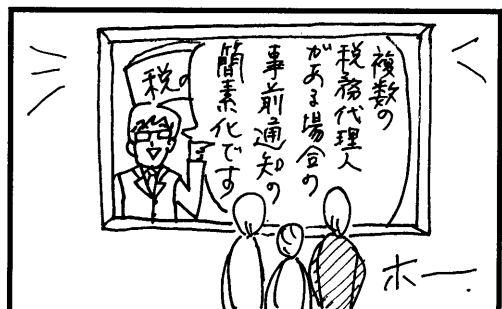 複数の
税務代理人
がある場合の
事前通知の
簡素化です
税の
ホー